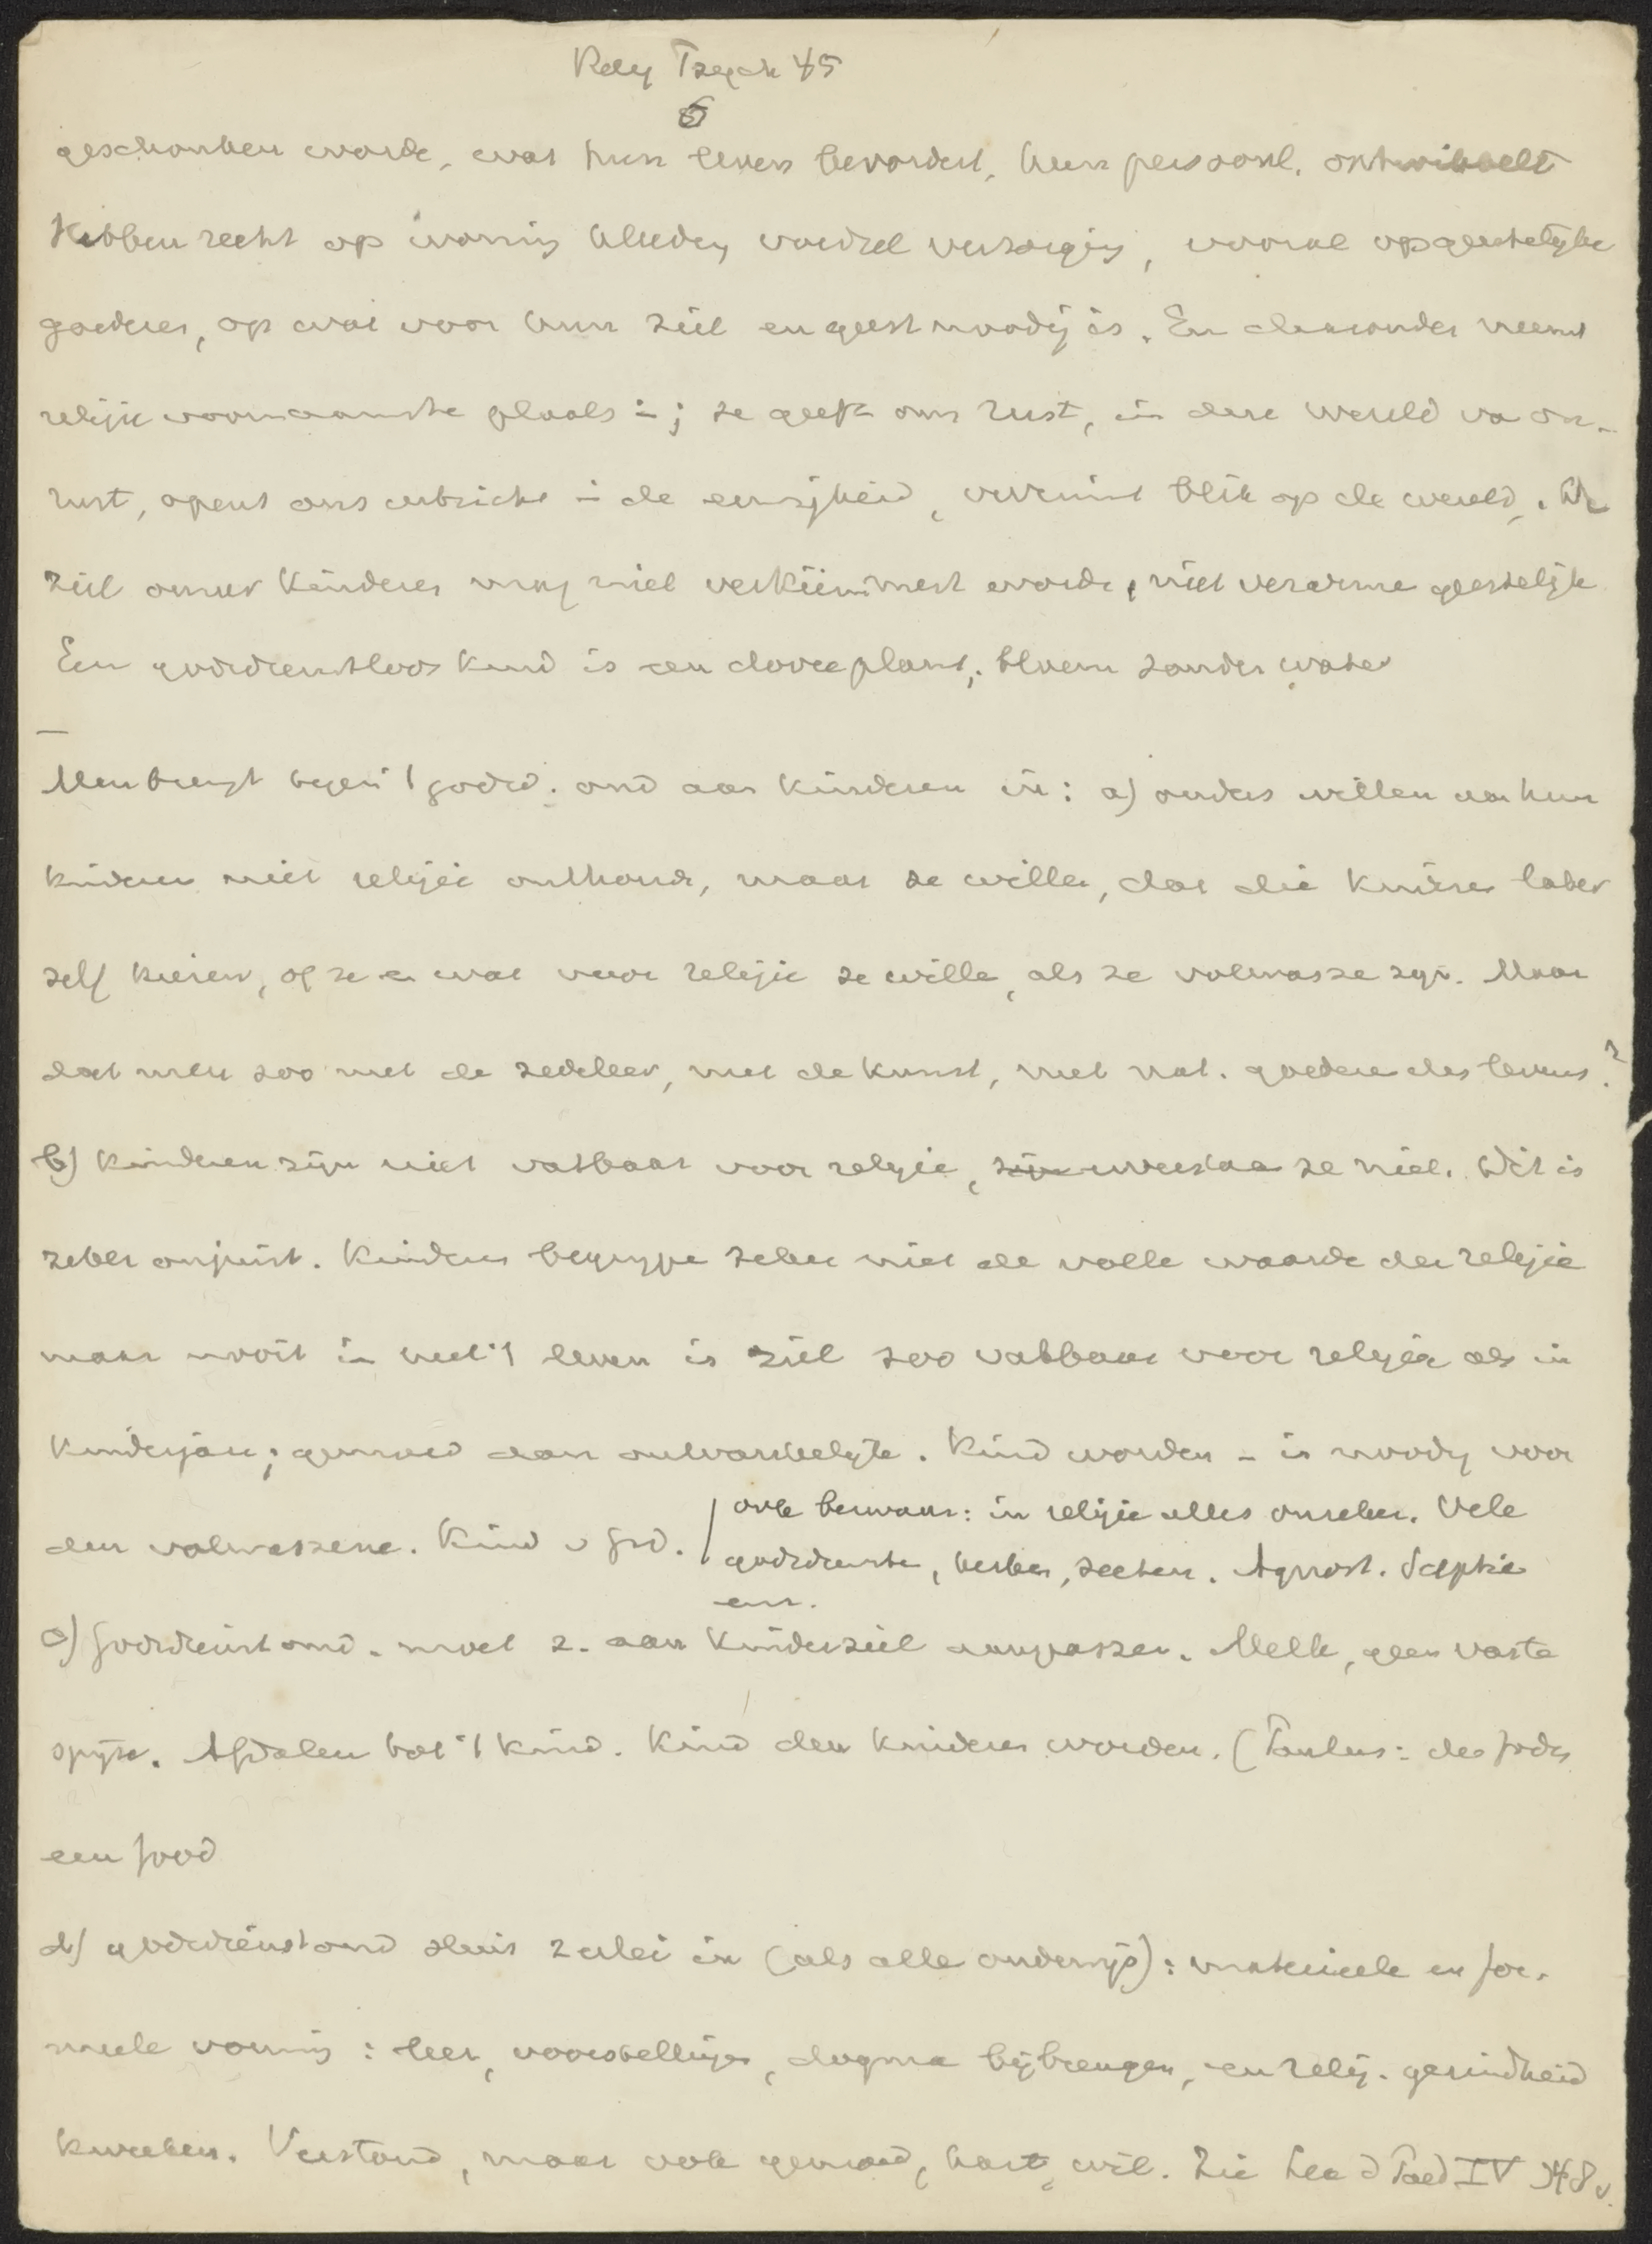 Relig Psych 45
6
geschonken worde, wat hun leven bevordert, hun persoonl. ontwikkelt
Hebben recht op woning kleeding voedsel verzorging, vooral op geestelyke
goederen, op wat voor hun ziel en geest noodig is. En daaronder neemt
religie voornaamste plaats in; ze geeft ons rust, in deze wereld va on-
rust, opent ons uitzicht in de eeuwigheid, verruimt blik op de wereld. De
ziel onzer kinderen mag niet verkümmert worde, niet verarme geestelijk
Een godsdienstloos kind is een dorre plant, bloem zonder water
Men brengt tegen 't godsd. ond aan kinderen in: a) ouders willen aan hun
kinderen niet religie onthoude, maar ze wille, dat die kindren later
zelf kiezen, of ze en wat voor religie ze wille, als ze volwasse zyn. Maar
doet men zoo met de zedeleer, met de kunst, met nat. goedere des levens?
b) Kinderen zijn niet vatbaar voor religie, zijn verstaa ze niet. Dit is
zeker onjuist. Kinderen begrype zeker niet de volle waarde der religie
maar nooit in heel 't leven is ziel zoo vatbaar voor religie als in
kinderjare; gemoed dan ontvankelijk. Kind worden - is noodig voor
den volwassene. Kind v God.
ook bezwaar: in religie alles onzeker. Vele
godsdienste, kerken, secten. Agnost. Sceptic
enz.
c) Godsdienst ond. moet z. aan kinderziel aanpassen. Melk, geen vaste
spijze. Afdalen tot 't kind. Kind den kinderen worden. (Paulus: den Joden
een Jood
d) godsdienstond sluit 2 erlei in (als alle onderwijs): materieele en for-
meele vorming: leer, voorstellingen, dogma bijbrengen, en relig. gezindheid
kweeken. Verstand, maar ook gemoed, hart, wil. Zie Paed IV 348 v.